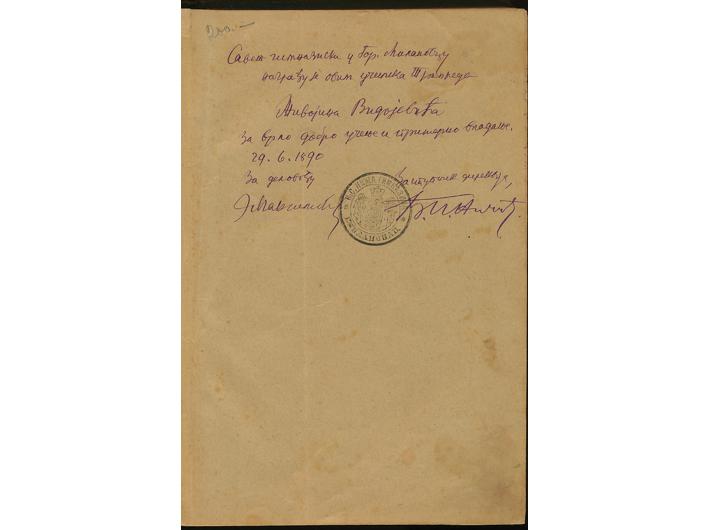 200.—
Савет гимназиски у Гор. Милановцу
награђује овим ученика III разреда
Живојина Видојевића
За врло добро учење и примерно владање.
29. 6. 1890
За деловођу Заступник директора,